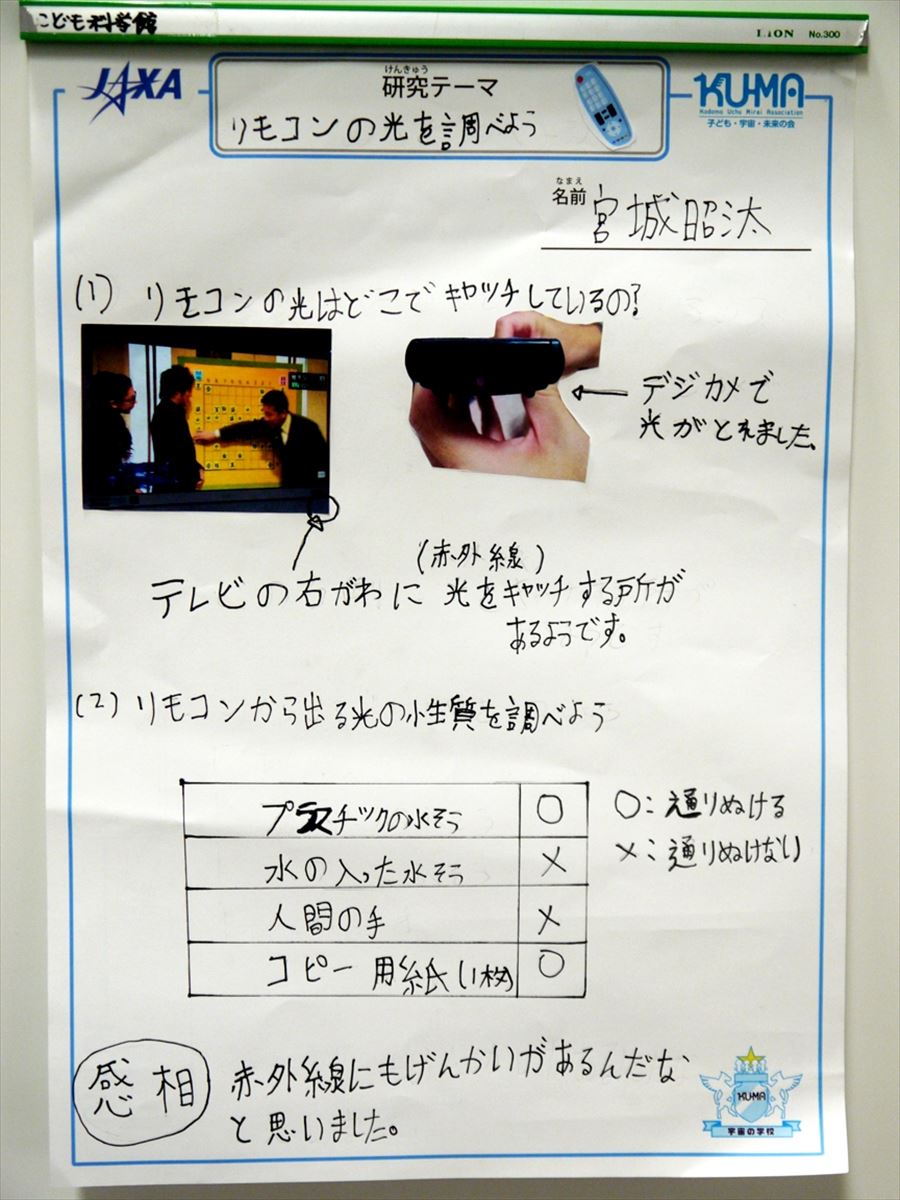 こども科学館
LION No.300
JAXA
けんきゅう
研究テーマ
リモコンの光を調べよう
KU-MA
Kodomo Uchu Mirai Association
子ども・宇宙・未来の会
なまえ
名前 宮城昭汰
(1) リモコンの光はどこでキャッチしているの?
デジカメで
光がとれました。
(赤外線)
テレビの右がわに光をキャッチする所が
あるようです。
(2) リモコンから出る光の性質を調べよう
プラスチックの水そう ○
水の入った水そう ×
人間の手 ×
コピー用紙(1枚) ○
○：通りぬける
×：通りぬけない
感相
赤外線にもげんかいがあるんだな
と思いました。
KU-MA
宇宙の学校